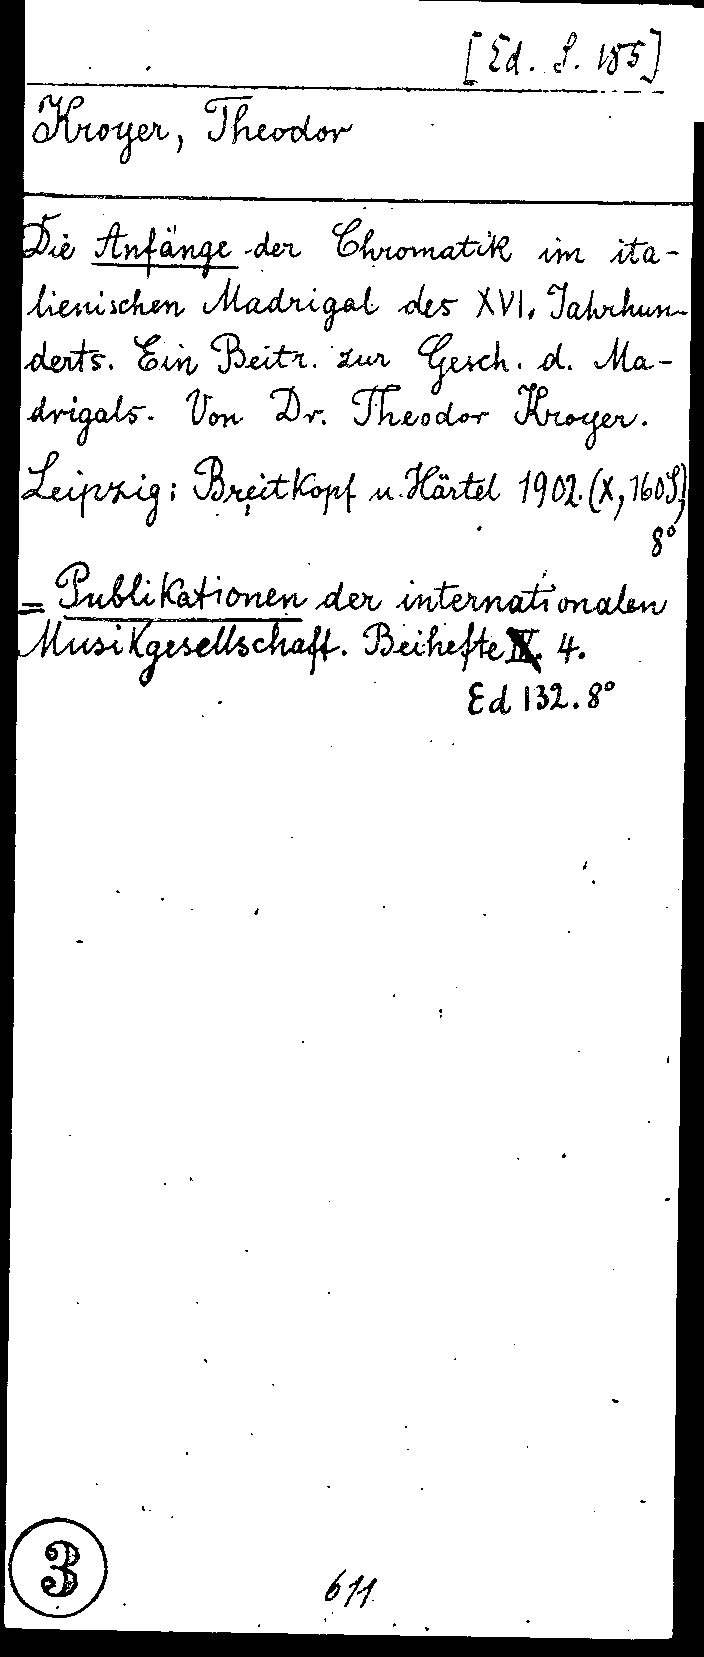 [Ed. S. 185]
Kroyer, Theodor
Die Anfänge der Chromatik im ita-
lienischen Madrigal des XVI. Jahrhun-
derts. Ein Beitr. zur Gesch. d. Ma-
drigals. Von Dr. Theodor Kroyer.
Leipzig: Breitkopf u. Härtel 1902. (X, 160 S.)
8°
= Publikationen der internationalen
Musikgesellschaft. Beihefte 4.
Ed 132. 8°
3
611